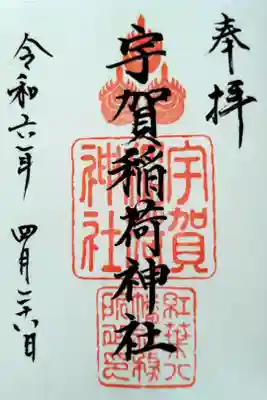 奉拝
宇賀稲荷神社
令和六年 四月二十八日
宇賀
稲荷
神社
紅葉八